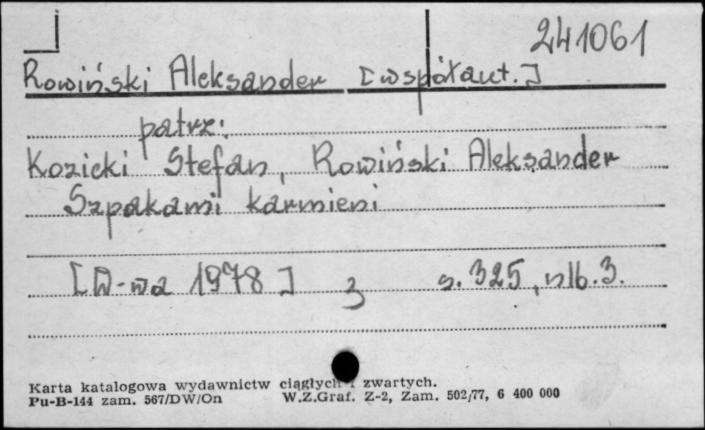 241061
Rowiński Aleksander [współaut.]
patrz:
Kozicki Stefan, Rowiński Aleksander
Szpakami karmieni
[W-wa 1978] 3 s. 325, nlb. 3.
Karta katalogowa wydawnictw ciągłych i zwartych.
Pu-B-144 zam. 567/DW/On W.Z.Graf. Z-2, Zam. 502/77, 6 400 000